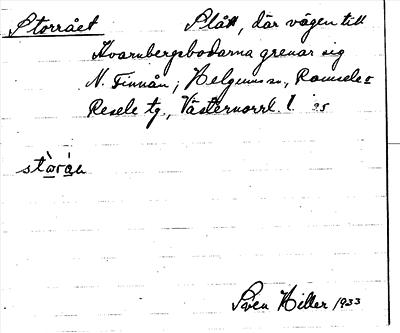 Storrået Slått, där vägen till
Kvarnbergsbodarna grenar sig
N. Finnån; Helgums sn, Ramsele &
Resele tg., Västernorrl. l
stàrá
Sven Hiller 1933